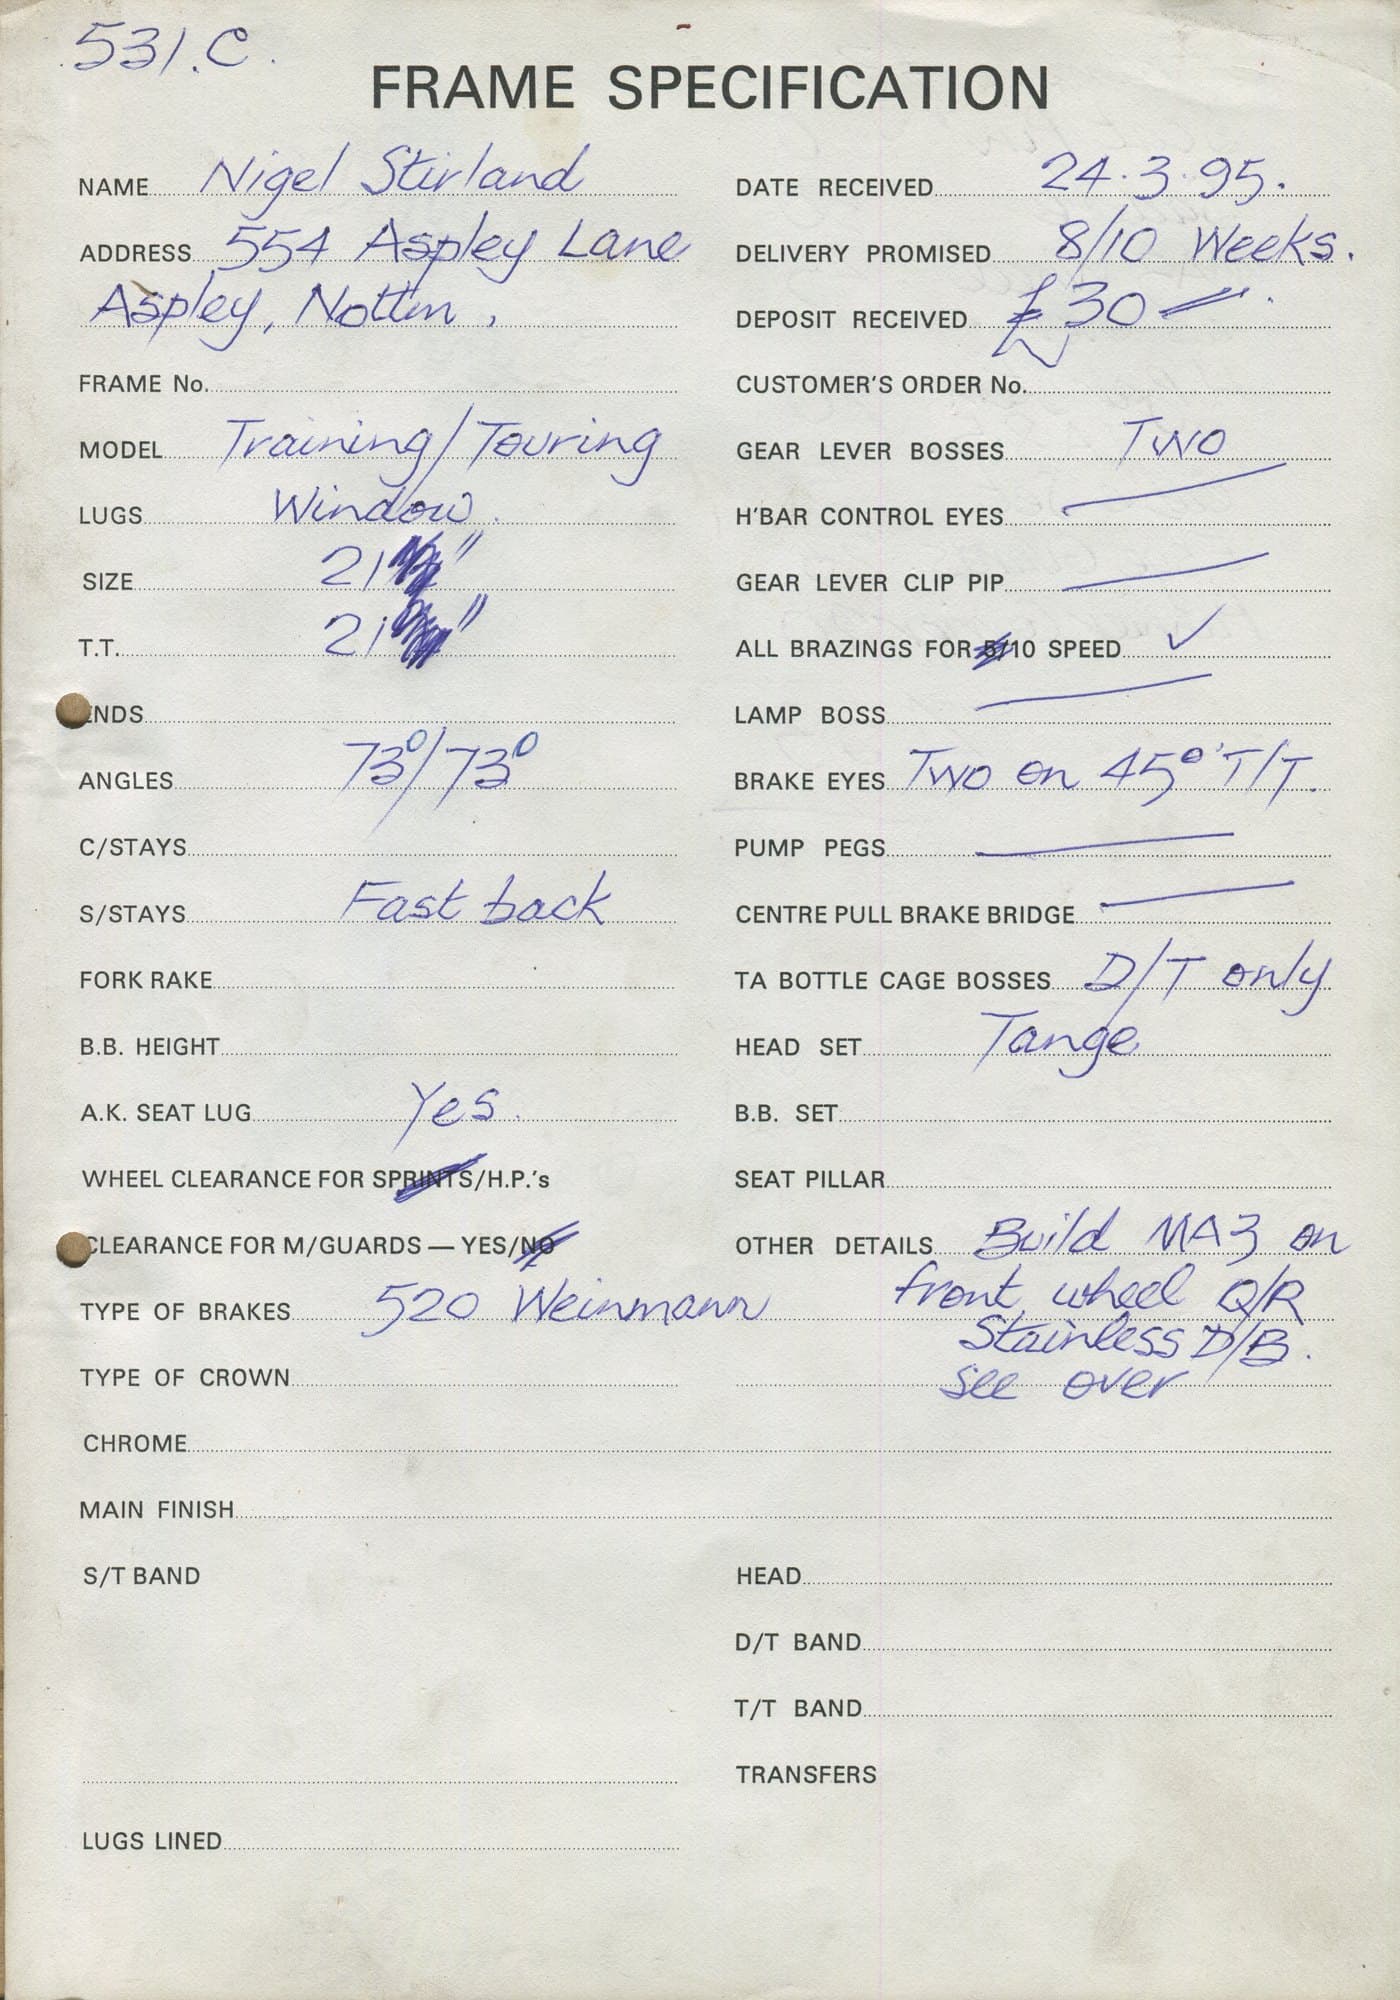 531.C.
FRAME SPECIFICATION
NAME Nigel Stirland
ADDRESS 554 Aspley Lane
Aspley, Nottm,
FRAME No.
MODEL Training/Touring
LUGS Window.
SIZE 21"
T.T. 21"
ENDS
ANGLES 73°/73°
C/STAYS
S/STAYS Fast back
FORK RAKE
B.B. HEIGHT
A.K. SEAT LUG Yes.
WHEEL CLEARANCE FOR SPRINTS/H.P.'s
CLEARANCE FOR M/GUARDS — YES/NO
TYPE OF BRAKES 520 Weinmann
TYPE OF CROWN
DATE RECEIVED 24.3.95.
DELIVERY PROMISED 8/10 Weeks.
DEPOSIT RECEIVED £30
CUSTOMER'S ORDER No.
GEAR LEVER BOSSES Two
H'BAR CONTROL EYES
GEAR LEVER CLIP PIP
ALL BRAZINGS FOR 5/10 SPEED ✓
LAMP BOSS
BRAKE EYES Two on 45° T/T.
PUMP PEGS
CENTRE PULL BRAKE BRIDGE
TA BOTTLE CAGE BOSSES D/T only
HEAD SET Tange
B.B. SET
SEAT PILLAR
OTHER DETAILS Build MA3 on
front wheel Q/R
Stainless D/B.
see over
CHROME
MAIN FINISH
S/T BAND
LUGS LINED
HEAD
D/T BAND
T/T BAND
TRANSFERS